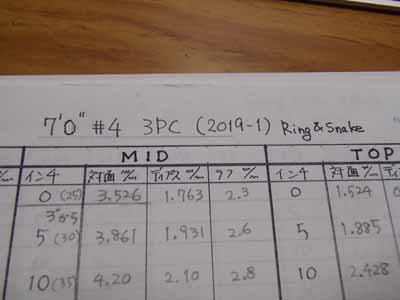 7'0" #4 3PC (2019-1) Ring & Snake
MID TOP
m/m インチ 対面 m/m ディプス m/m ラフ m/m インチ 対面 m/m
0 (25) 3.526 1.763 2.3 0 1.524
5 (30) 3.861 1.931 2.6 5 1.885
10 (35) 4.20 2.10 2.8 10 2.428